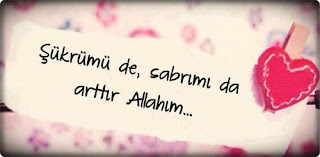 Şükrümü de, sabrımı da
arttır Allahım...